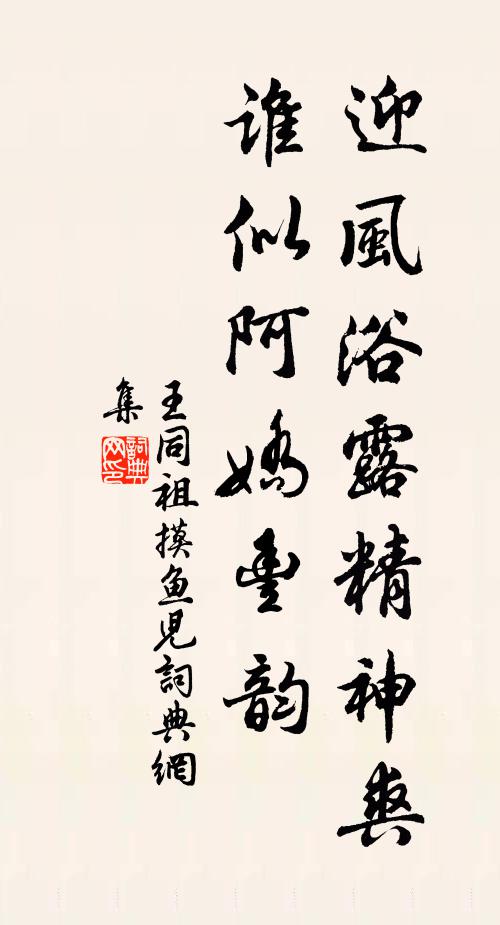 迎風浴露精神爽
誰似阿嬌豊韵
王同祖摸魚児詞典網
集
詞典网印